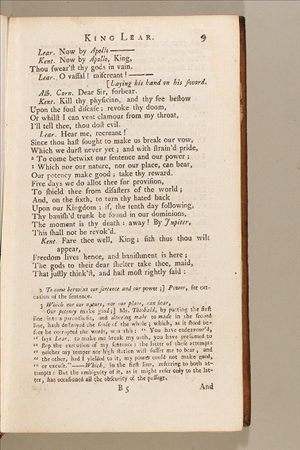 KING LEAR. 9
Lear. Now by Apollo———
Kent. Now by Apollo, King,
Thou swear'st thy gods in vain.
Lear. O vassal! miscreant!———
[Laying his hand on his sword.
Alb. Corn. Dear Sir, forbear.
Kent. Kill thy physician, and thy fee bestow
Upon the foul disease; revoke thy doom,
Or whilst I can vent clamour from my throat,
I'll tell thee, thou dost evil.
Lear. Hear me, recreant!
Since thou hast sought to make us break our vow,
Which we durst never yet; and with strain'd pride,
2 To come betwixt our sentence and our power;
3 Which nor our nature, nor our place, can bear,
Our potency make good; take thy reward.
Five days we do allot thee for provision,
To shield thee from disasters of the world;
And, on the sixth, to turn thy hated back
Upon our Kingdom: if, the tenth day following,
Thy banish'd trunk be found in our dominions,
The moment is thy death: away! By Jupiter,
This shall not be revok'd.
Kent. Fare thee well, King; sith thus thou wilt
appear,
Freedom lives hence, and banishment is here;
The gods to their dear shelter take thee, maid,
That justly think'st, and hast most rightly said:
2 To come betwixt our sentence and our power;] Power, for exe-
cution of the sentence.
3 Which nor our nature, nor our place, can bear,
Our potency make good;] Mr. Theobald, by putting the first
line into a parenthesis, and altering make to made in the second
line, had destroyed the sense of the whole; which, as it stood be-
fore he corrupted the words, was this: " You have endeavour'd,
" says Lear, to make me break my oath, you have presumed to
" stop the execution of my sentence: the latter of these attempts
" neither my temper nor high station will suffer me to bear; and
" the other, had I yielded to it, my power could not make good,
" or excuse."—Which, in the first line, referring to both at-
tempts: But the ambiguity of it, as it might refer only to the lat-
ter, has occasioned all the obscurity of the passage.
B 5 And